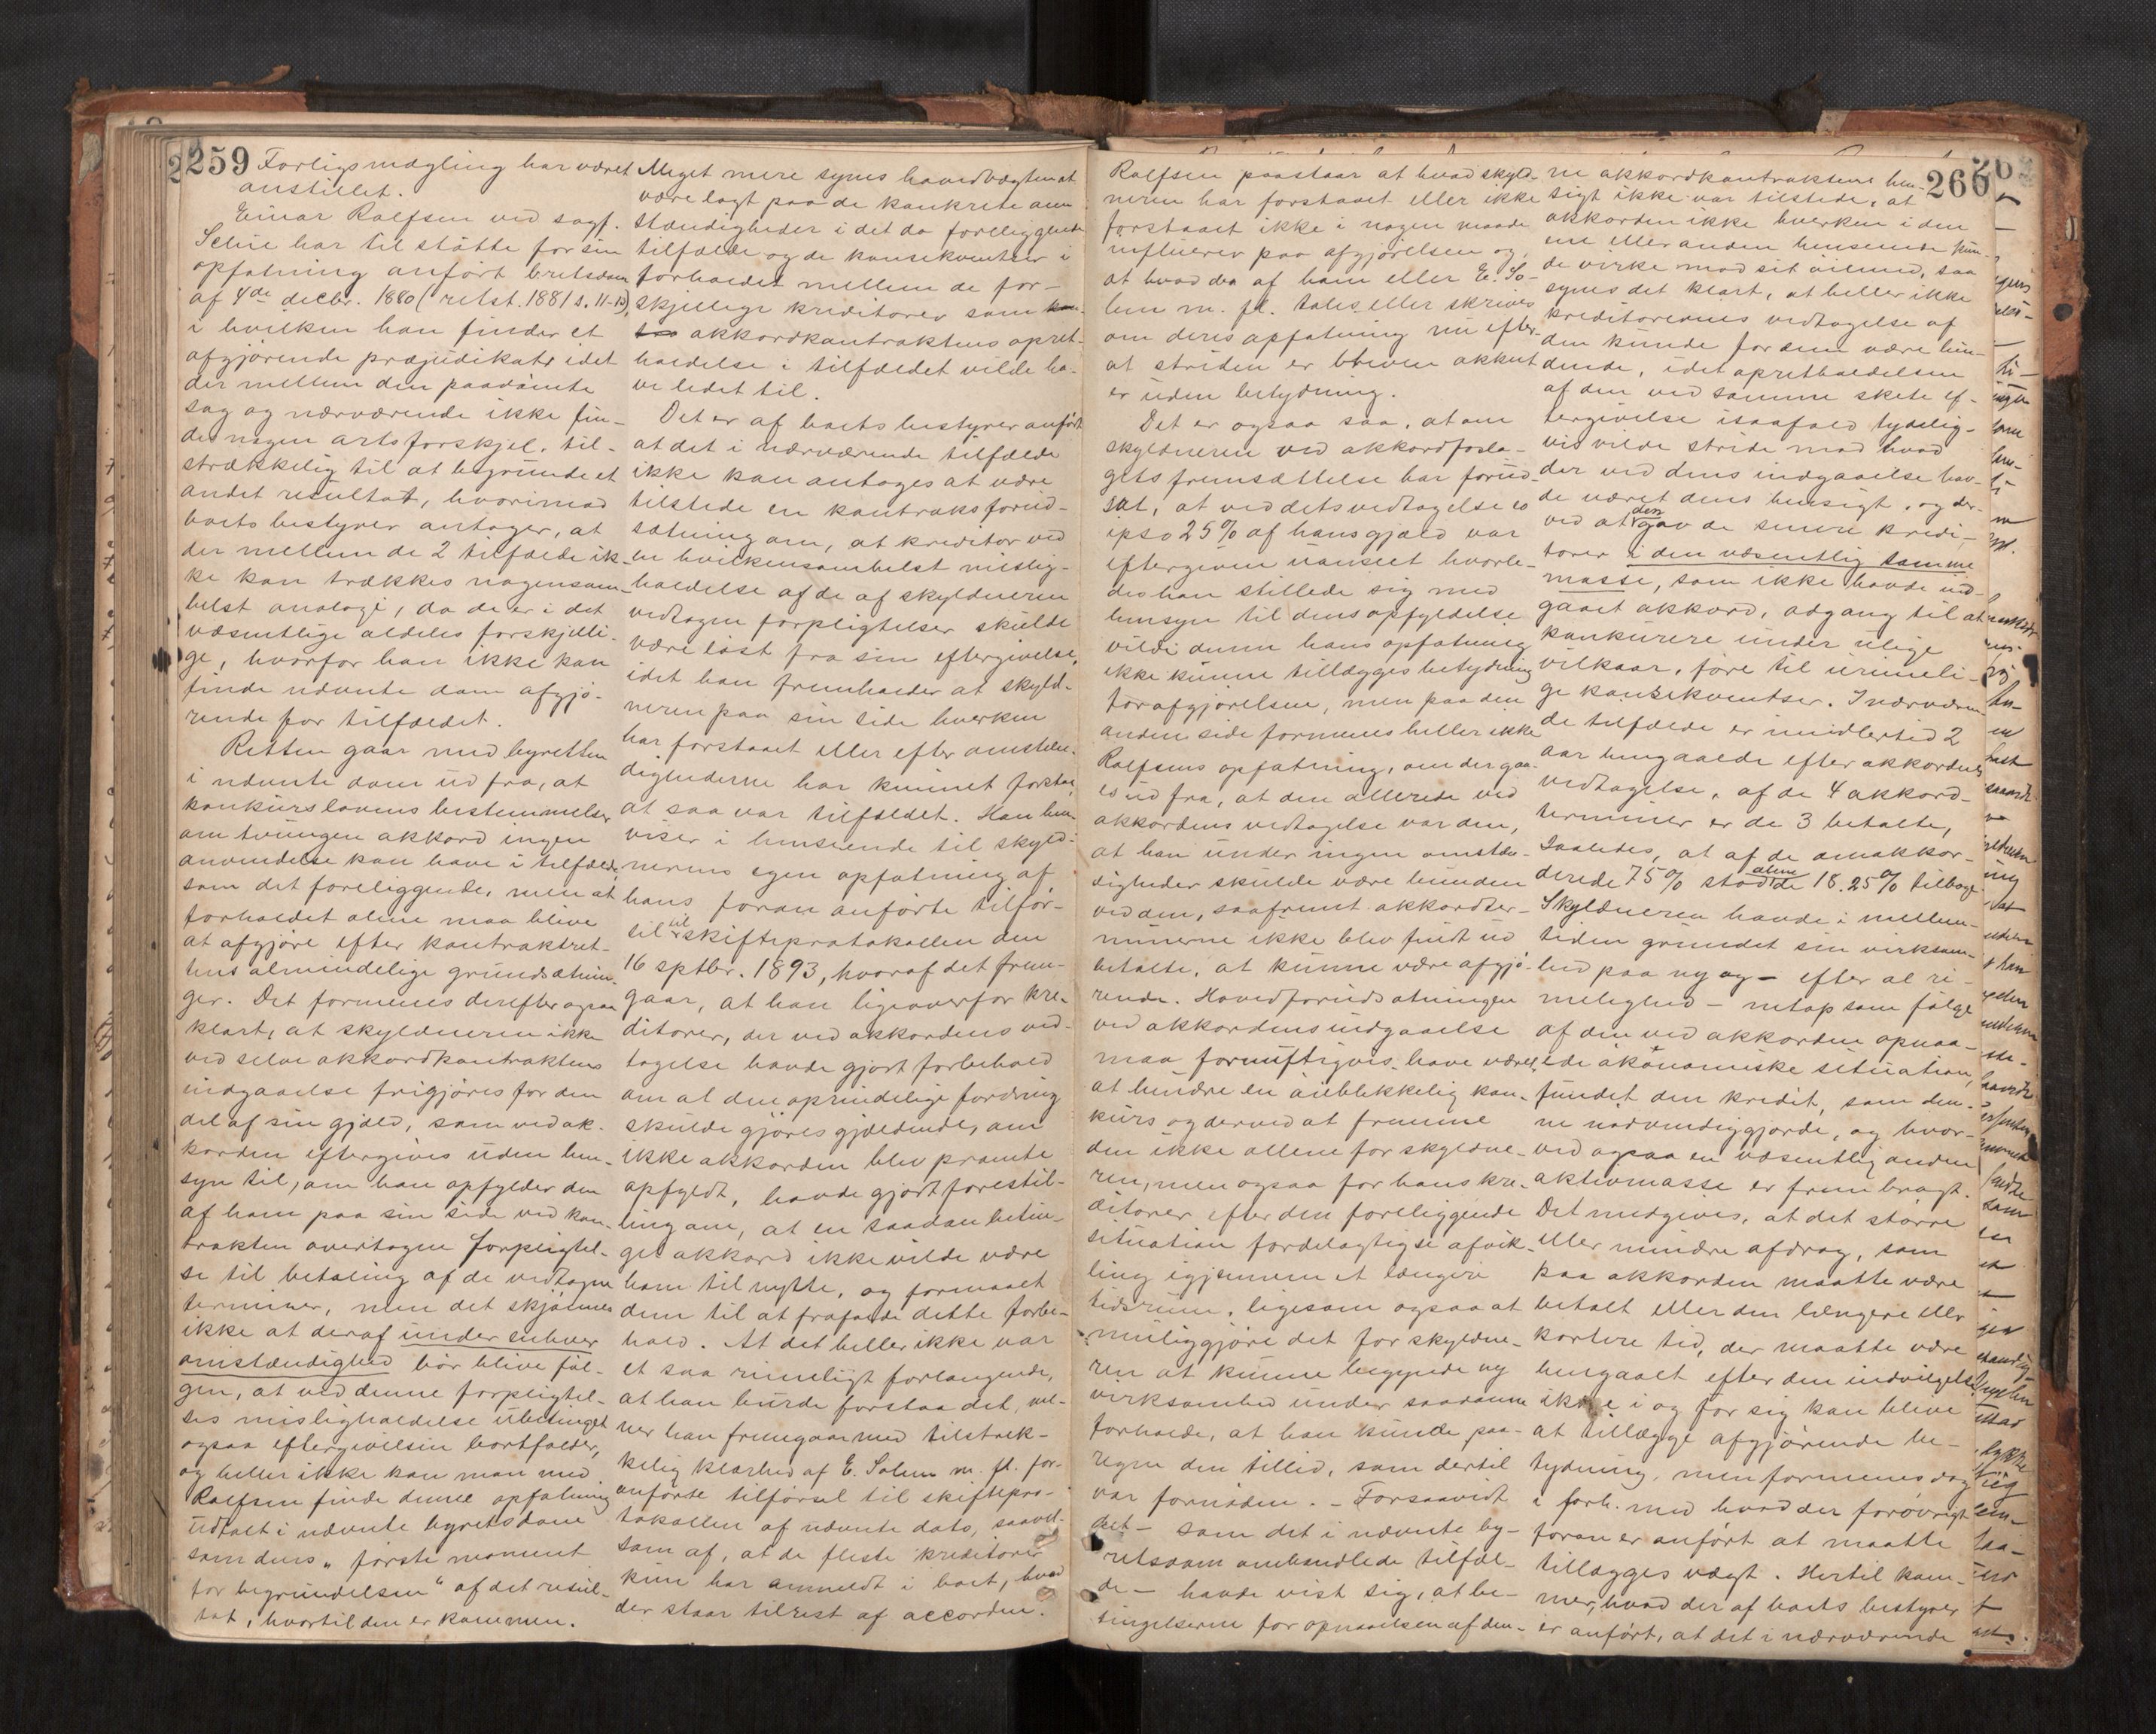 259
Forligsmægling har været
anstillet.
Einar Rolfsen ved sagf.
Schie har til støtte for sin
opfatning anført byretsdom
af 4de decbr. 1880 (retst. 1881 s. 11-13),
i hvilken han finder et
afgjørende præjudikat, idet
der mellem den paadømte
sag og nærværende ikke fin-
des nogen artsforskjel, til-
strækkelig til at begrunde et
andet resultat, hvorimod
boets bestyrer antager, at
der mellem de 2 tilfælde ik-
ke kan trækkes nogensom-
helst analogi, da de er i det
væsentlige aldeles forskjelli-
ge, hvorfor han ikke kan
finde nævnte dom afgjø-
rende for tilfældet.
Retten gaar med byretten
i nævnte dom ud fra, at
konkurslovens bestemmelser
om tvungen akkord ingen
anvendelse kan have i tilfælde
som det foreliggende, men at
forholdet alene maa blive
at afgjøre efter kontraktsret-
tens almindelige grundsætnin-
ger. Det formenes derefter ogsaa
klart, at skyldneren ikke
ved selve akkordkontraktens
indgaaelse frigjøres for den
del af sin gjæld, som ved ak-
korden eftergives uden hen-
syn til, om han opfylder den
af ham paa sin side ved kon-
trakten overtagne forpligtel-
se til betaling af de vedtagne
terminer, men det skjønnes
ikke at deraf under enhver
omstændighed bør blive føl-
gen, at ved denne forpligtel-
ses misligholdelse ubetinget
ogsaa eftergivelsen bortfalder,
og heller ikke kan man med
Rolfsen finde denne opfatning
udtalt i nævnte byretsdom
som dens "første moment
for begrundelsen" af det resul-
tat, hvortil den er kommen.
Meget mere synes hovedvægten at
være lagt paa de konkrete om-
stændigheder i det da foreliggende
tilfælde og de konsekventser i
forholdet mellem de for-
skjellige kreditorer som
akkordkontraktens opret-
holdelse i tilfældet vilde ha-
ve ledet til.
Det er af boets bestyrer anført
at det i nærværende tilfælde
ikke kan antages at være
tilstede en kontraktsforud-
sætning om, at kreditor ved
en hvilkensomhelst mislig-
holdelse af de af skyldneren
vedtagne forpligtelser skulde
være løst fra sin eftergivelse,
idet han fremholder at skyld-
neren paa sin side hverken
har forstaaet eller efter omstæn-
dighederne har kunnet forstaa,
at saa var tilfældet. Han hen-
viser i henseende til skyld-
nerens egen opfatning af
hans foran anførte tilfør-
sil til skifteprotokollen den
16 sptbr. 1893, hvoraf det frem-
gaar, at han ligeoverfor kre-
ditorer, der ved akkordens ved-
tagelse havde gjort forbehold
om at den oprindelige fordring
skulde gjøres gjældende, om
ikke akkorden blev promte
opfyldt, havde gjort forestil-
ling om, at en saadan betin-
get akkord ikke vilde være
ham til nytte, og formaaet
dem til at frafalde dette forbe-
hold. At det heller ikke var
et saa rimeligt forlangende,
at han burde forstaa det, me-
ner han fremgaar med tilstræk-
kelig klarhed af E. Solem m. fl. for-
anførte tilførsel til skiftepro-
tokollen af nævnte dato, saavel-
som af, at de fleste kreditorer
kun har anmeldt i boet, hvad
der staar tilrest af accorden.
260
Rolfsen paastaar at hvad skyld-
neren har forstaaet eller ikke
forstaaet ikke i nogen maade
influerer paa afgjørelsen og
at hvad der af ham eller E. So-
lem m. fl. tales eller skrives
om deres opfatning nu efter
at striden er bleven akkut
er uden betydning.
Det er ogsaa saa, at om
skyldneren ved akkordforsla-
gets fremsættelse har forud-
sat, at ved dets vedtagelse eo
ipso 25% af hans gjæld var
eftergiven uanseet hvorle-
des han stillede sig med
hensyn til dens opfyldelse
vilde denne hans opfatning
ikke kunne tillægges betydning
for afgjørelsen, men paa den
anden side formenes heller ikke
Rolfsens opfatning, om der gaa-
es ud fra, at den allerede ved
akkordens vedtagelse var den,
at han under ingen omstæn-
digheder skulde være bunden
ved den, saafremt akkordter-
minerne ikke blev fuldt ud
betalte, at kunne være afgjø-
rende. Hovedforudsætningen
ved akkordens indgaaelse
maa fornuftigvis have været,
at hindre en øieblikkelig kon-
kurs og derved at fremme
den ikke allene for skyldne-
ren, men ogsaa for hans kre-
ditorer efter den foreliggende
situation fordelagtigste afvik-
ling igjennem et længere
tidsrum, ligesom ogsaa at
muliggjøre det for skyldne-
ren at kunne begynde ny
virksomhed under saadanne
forholde, at han kunde paa-
regne den tillid, som dertil
var fornøden. – Forsaavidt
det – som det i nævnte by-
retsdom omhandlede tilfæl-
de – havde vist sig, at be-
tingelserne for opnaaelsen af den-
ne akkordkontraktens hen-
sigt ikke var tilstede, at
akkorden ikke hverken i den
ene eller anden henseende kun-
de virke mod sit øiemed, saa
synes det klart, at heller ikke
kreditorernes vedtagelse af
den kunde for dem være bin-
dende, idet opretholdelsen
af den ved samme skete ef-
tergivelse isaafald tydelig-
vis vilde stride mod hvad
der ved dens indgaaelse hav-
de været dens hensigt, og der-
ved at den gav de senere kredi-
torer i den væsentlig samme
masse, som ikke havde ind-
gaaet akkord, adgang til at
konkurere under ulige
vilkaar, føre til urimeli-
ge konsekventser. I nærværen-
de tilfælde er imidlertid 2
aar hengaaede efter akkordens
vedtagelse, af de 4 akkord-
terminer er de 3 betalte,
saaledes, at af de omakkor-
derede 75% stod alene de 18.25% tilbage.
Skyldneren havde i mellem-
tiden grundet sin virksom-
hed paa ny og – efter al ri-
melighed – netop som følge
af den ved akkorden opnaa-
ede økonomiske situation,
fundet den kredit, som den-
ne nødvendiggjorde, og hvor-
ved ogsaa en væsentlig anden
aktivmasse er frembragt.
Det medgives, at det større
eller mindre afdrag, som
paa akkorden maatte være
betalt eller den længere eller
kortere tid, der maatte være
hengaaet efter den indvilgelse,
ikke i og for sig kan blive
at tillægge afgjørende be-
tydning, men formenes dog
i forb. med hvad der forøvrigt
foran er anført at maatte
tillægges vægt. Hertil kom-
mer, hvad der af boets bestyrer
er anført, at det i nærværende